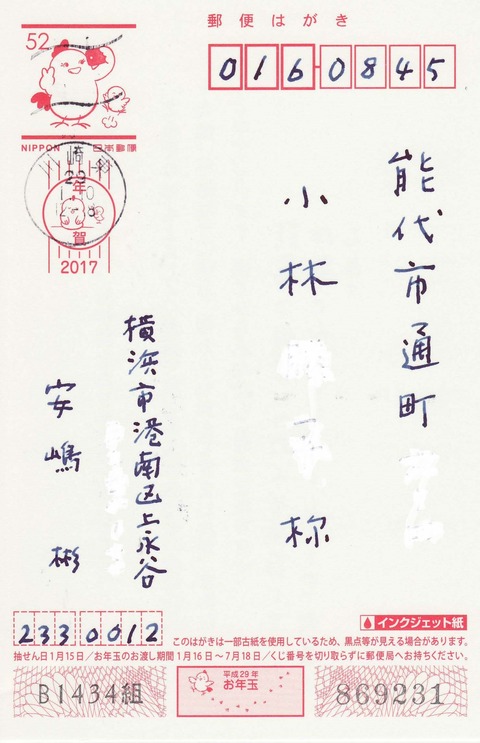 郵便はがき
52
NIPPON 日本郵便
016-0845
能代市通町
小林 様
川崎
29
年賀
2017
横浜市港南区上永谷
安嶋彬
2330012
インクジェット紙
このはがきは一部古紙を使用しているため、黒点等が見える場合があります。
抽せん日1月15日／お年玉のお渡し期間1月16日～7月18日／くじ番号を切り取らずに郵便局へお持ちください。
B1434組
平成29年
お年玉
869231